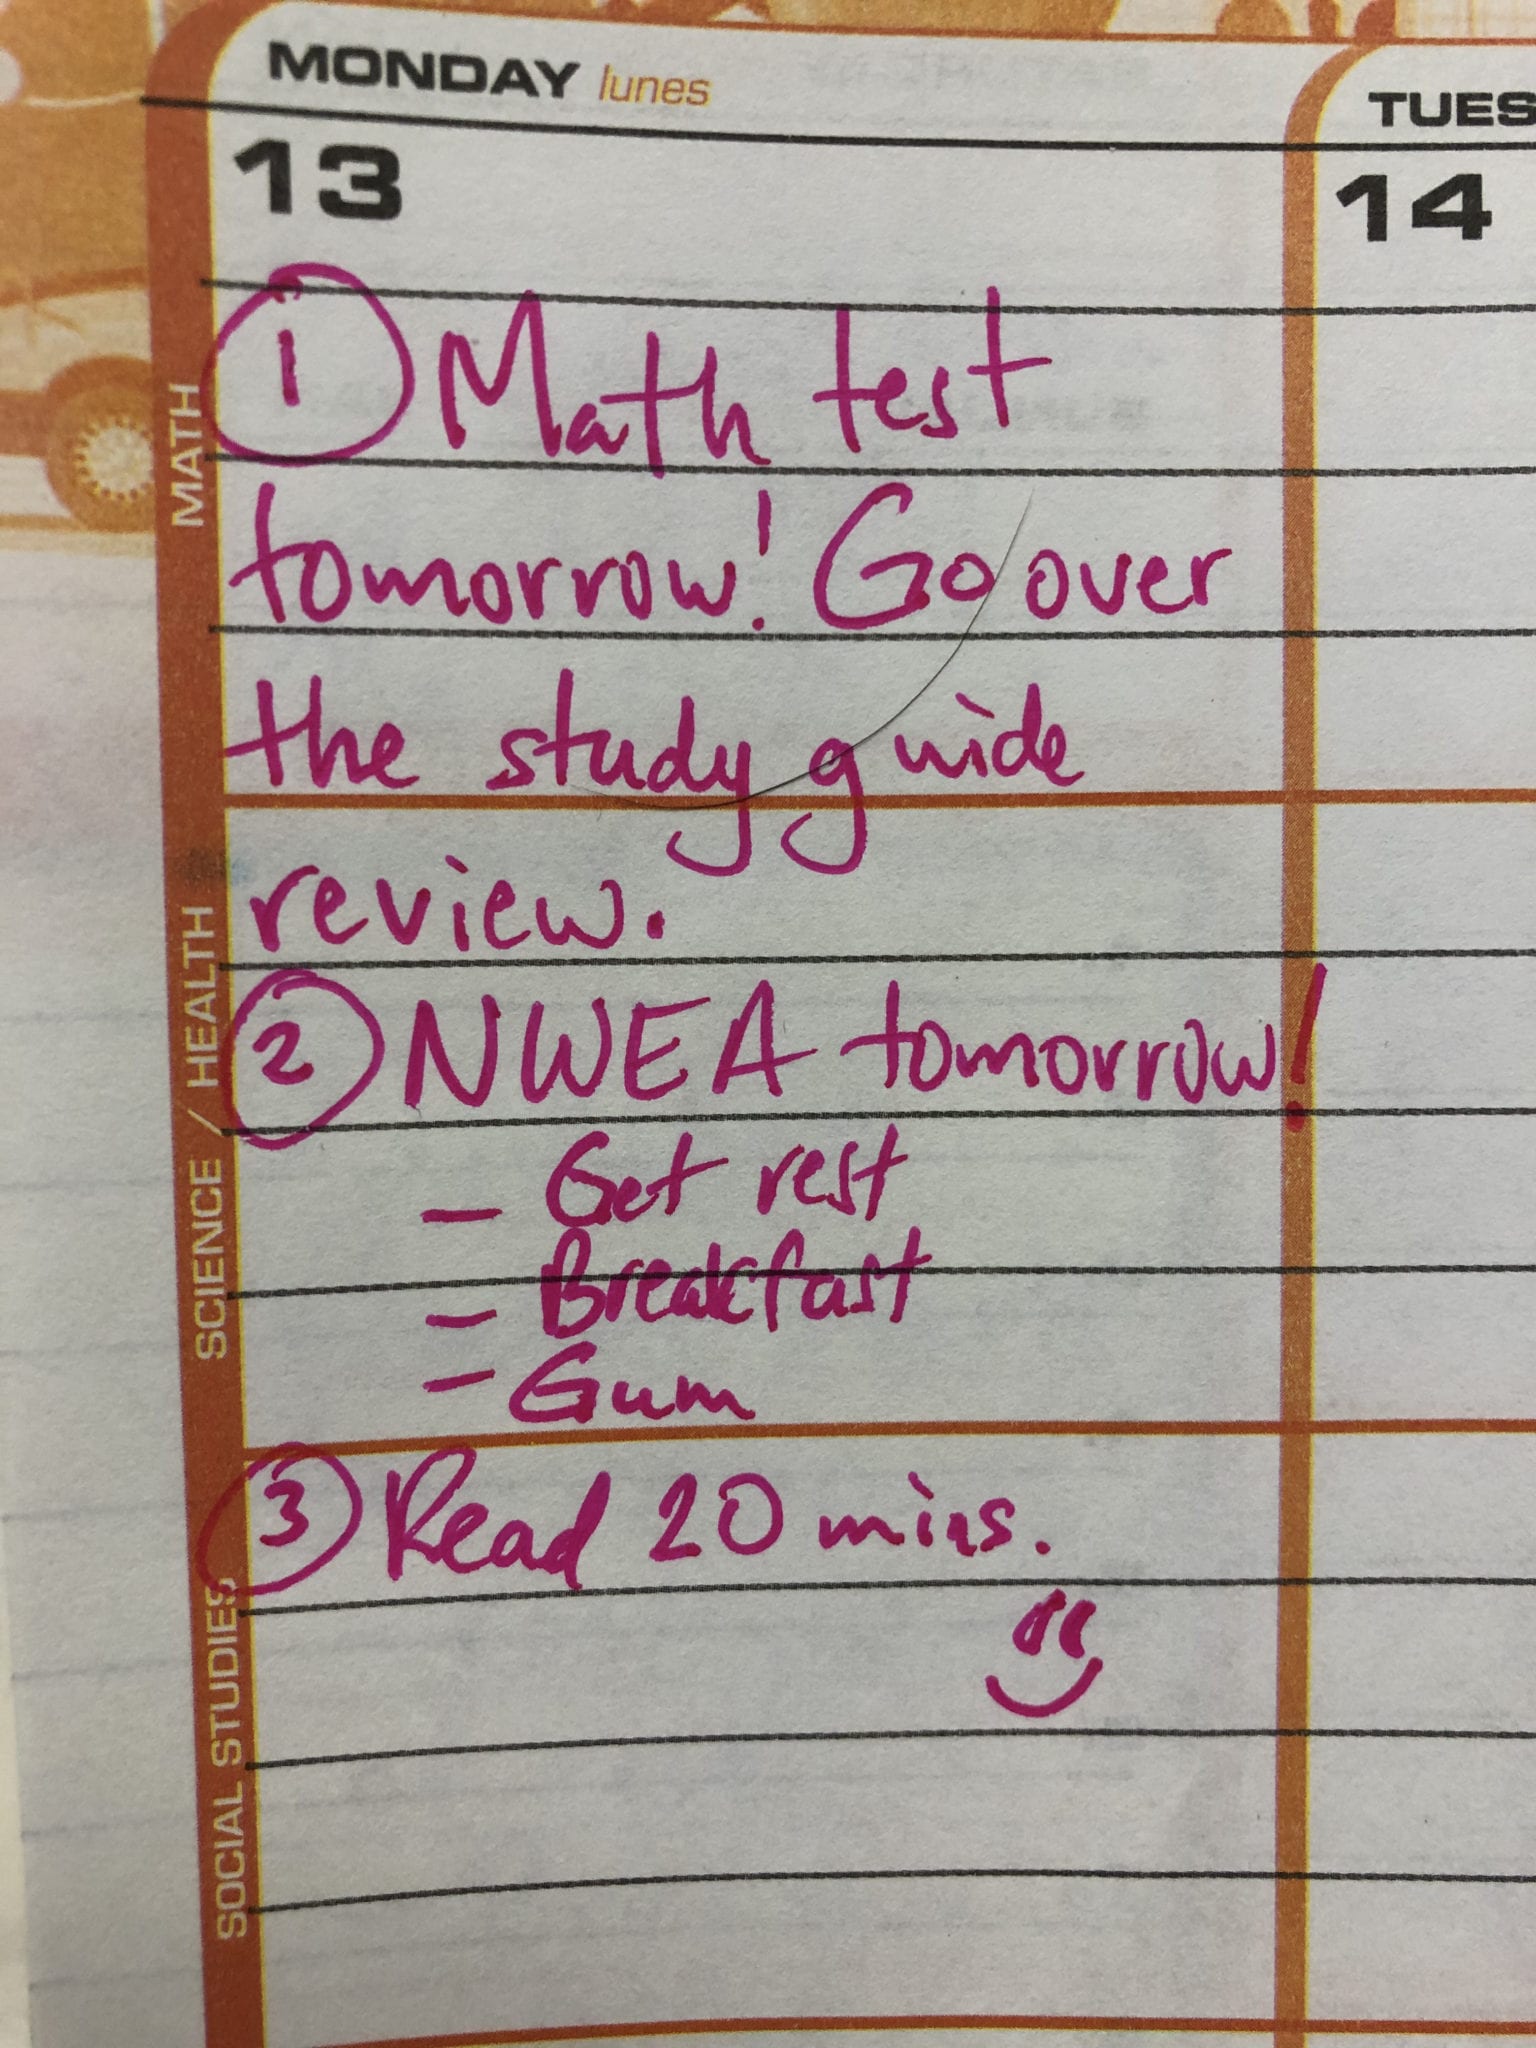 MONDAY lunes
TUES
13
14
MATH
① Math test
tomorrow! Go over
the study guide
review.
SCIENCE / HEALTH
② NWEA tomorrow!
- Get rest
- Breakfast
- Gum
SOCIAL STUDIES
③ Read 20 mins.